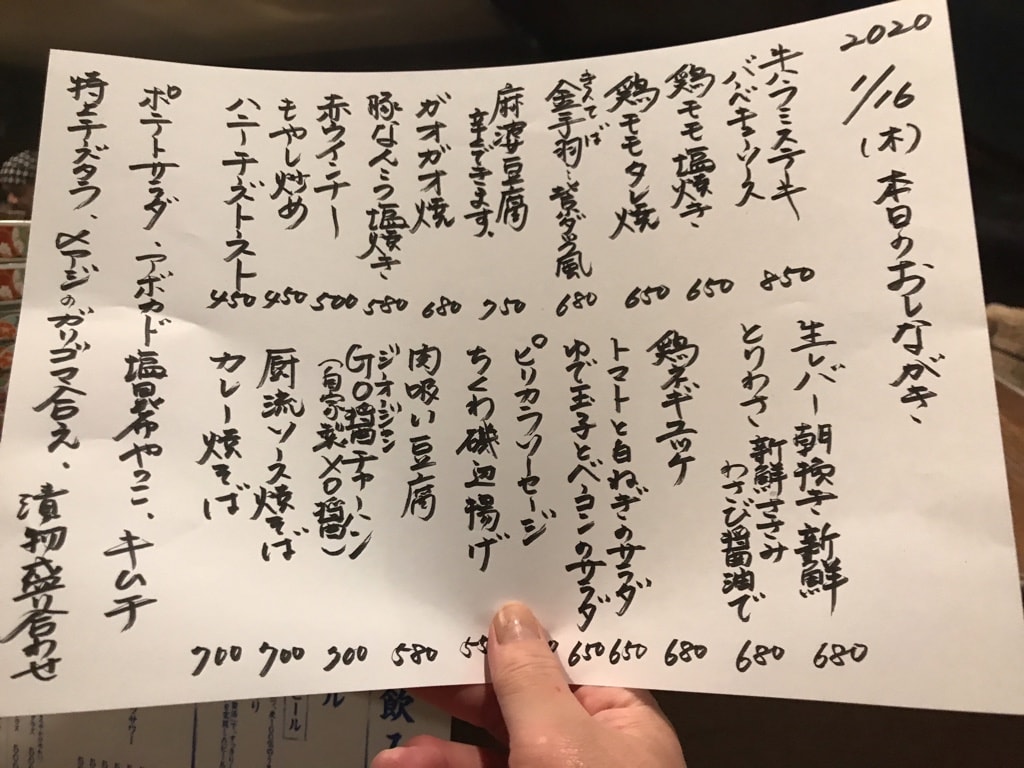 2020
1/16(木) 本日のおしながき
牛ハラミステーキ
バベチューソース 850
鶏モモ塩焼き 650
鶏モモタレ焼 650
きんてば
金手羽 680
麻婆豆腐
辛くできます。 750
ガオガオ焼 680
豚なんこつ塩焼き 580
赤ウインナー 500
もやし炒め 450
ハニーチーズトースト 450
生レバー 朝挽き 新鮮 680
とりわさ 新鮮ささみ
わさび醤油で 680
鶏ネギユッケ 680
トマトと白ねぎのサラダ 650
ゆで玉子とベーコンのサラダ 650
ピリカラソーセージ
ちくわ磯辺揚げ
肉吸い豆腐 580
ジオジャン
GO醤チャーハン
(自家製XO醤) 700
厨流ソース焼そば 700
カレー焼そば 700
ポテトサラダ、アボカド塩昆布やっこ、キムチ
特上チーズタラ、〆アジのガリゴマ合え、漬物盛合わせ
飲